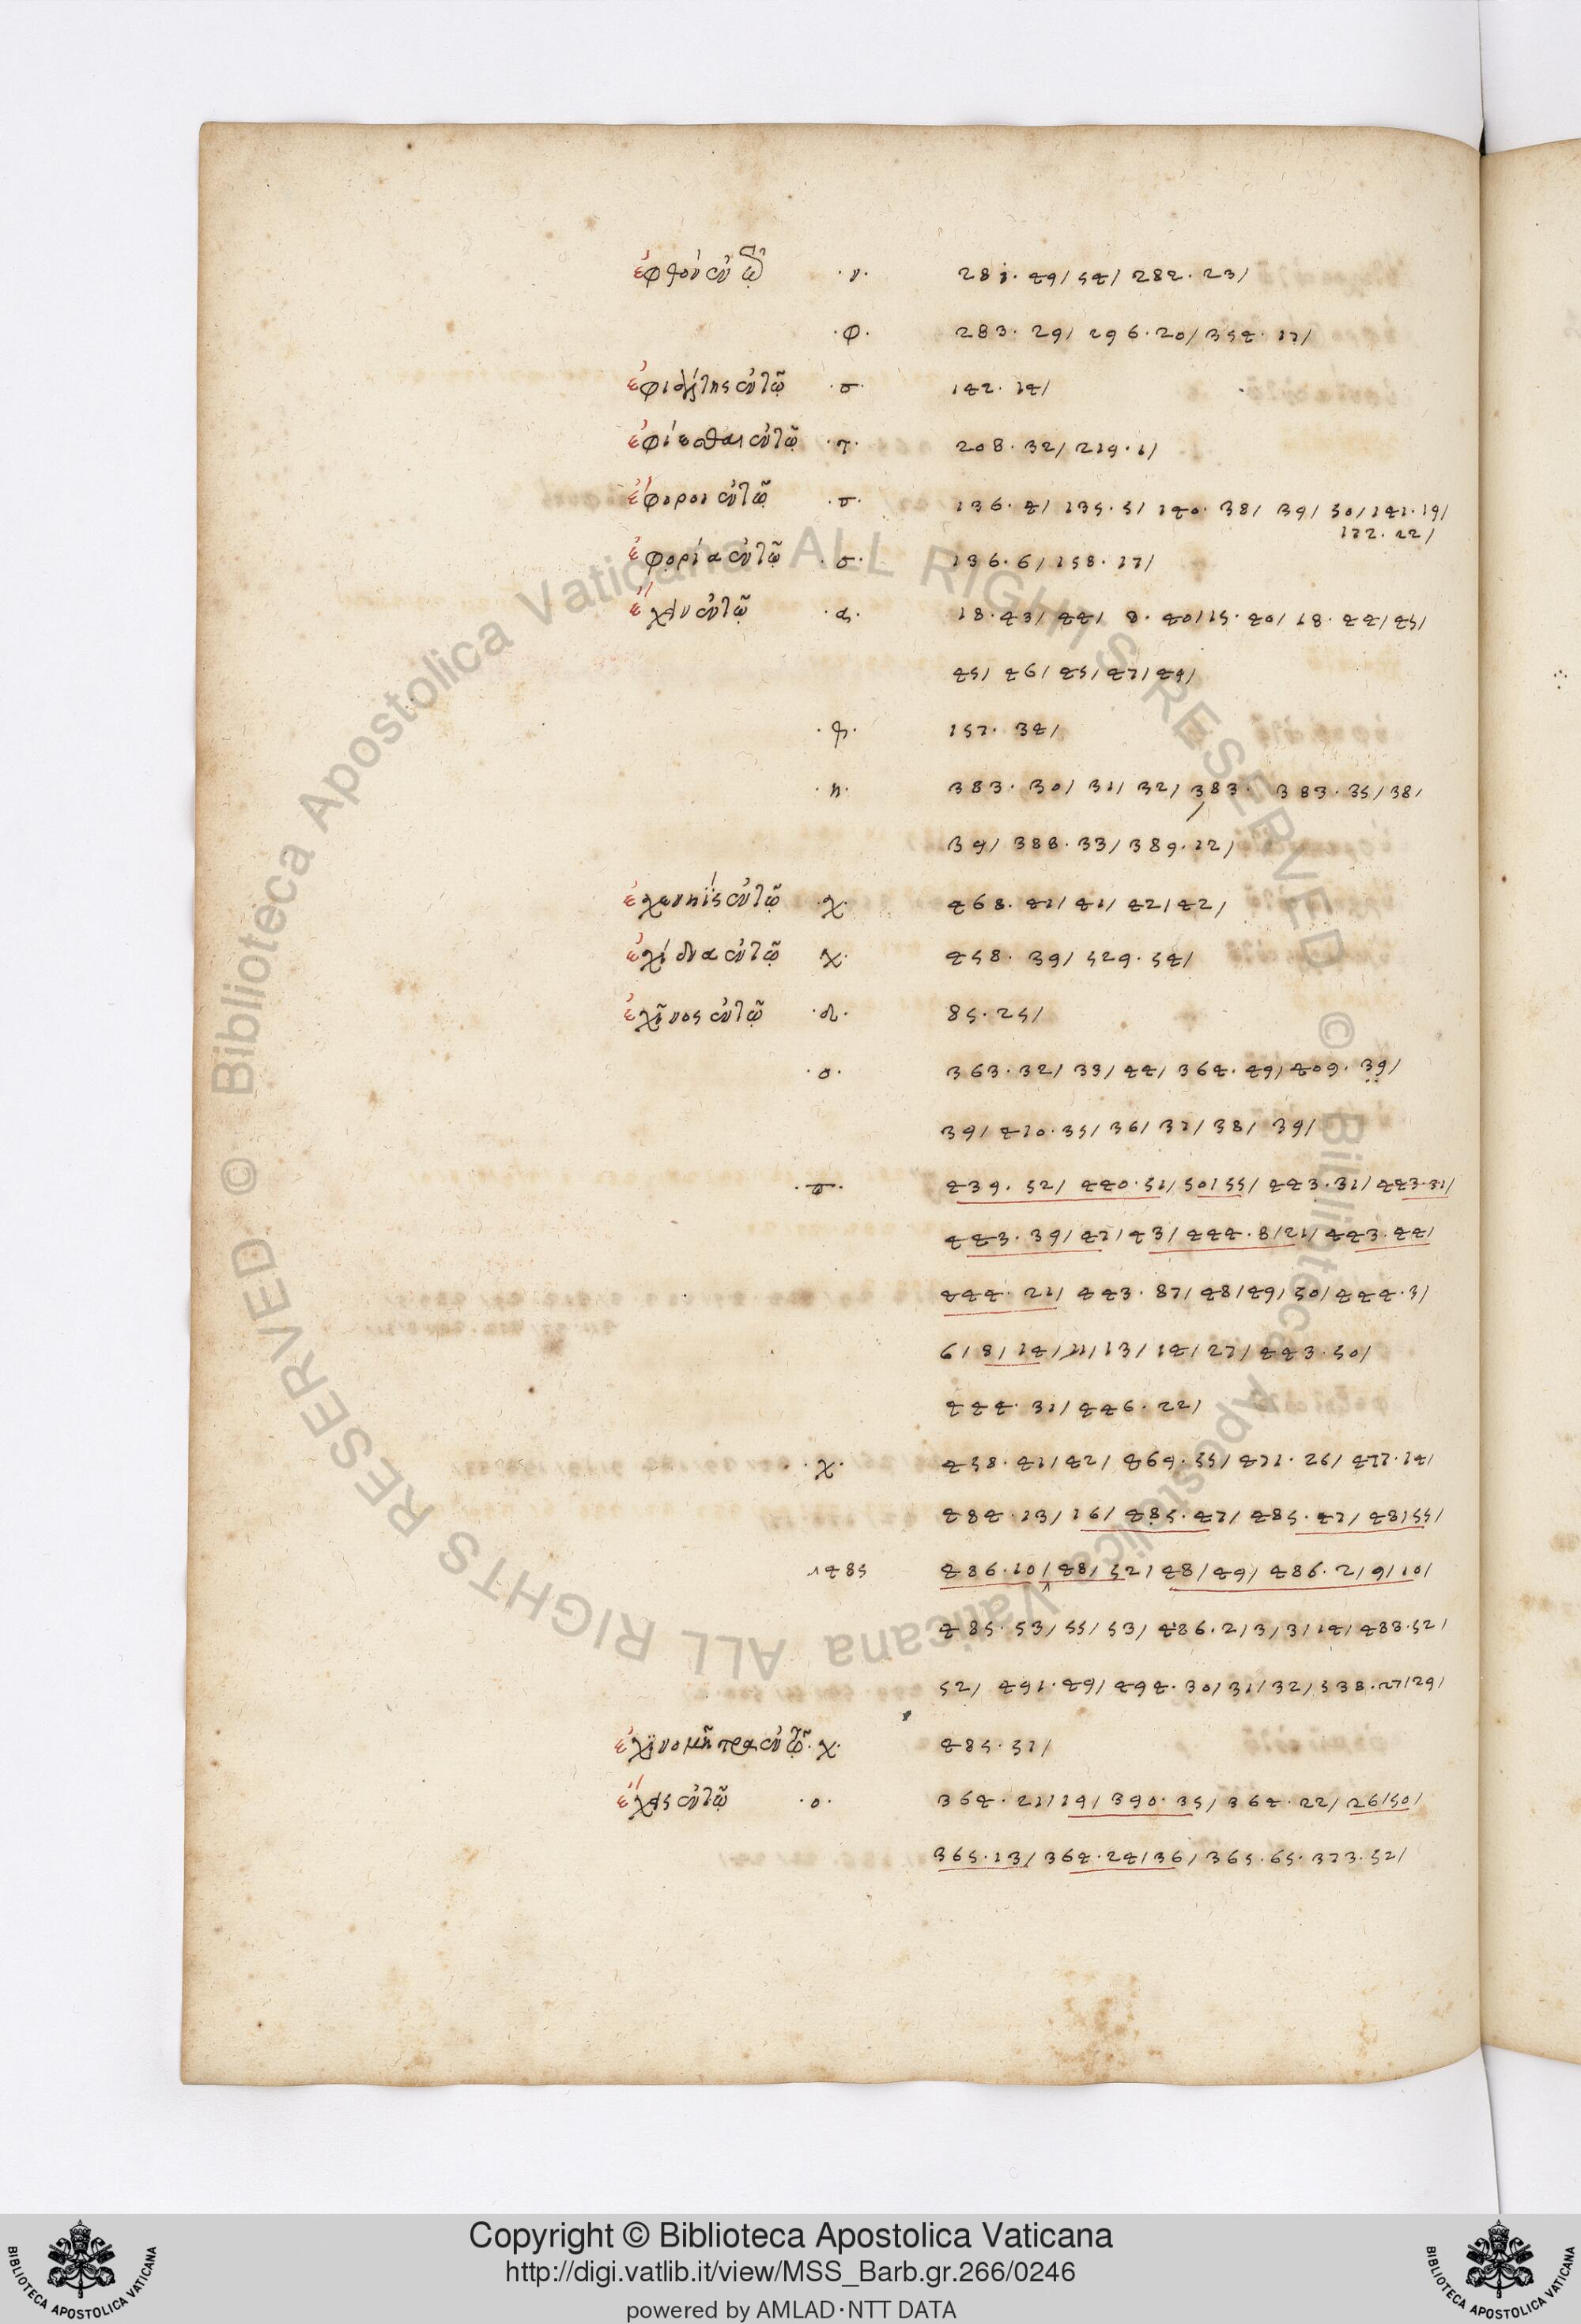 ἑφθὸν ἐν τῷ ·ν· 281·49/ 54/ 282·23/
·φ· 283·29/ 296·20/ 354·17/
ἐφιάλτης ἐν τῷ ·σ· 142·14/
ἐφίεσθαι ἐν τῷ ·τ· 208·32/ 219·1/
ἔφοροι ἐν τῷ ·σ· 136·4/ 135·5/ 140·38/ 39/ 50/ 141·19/
172·22/
ἐφορία ἐν τῷ ·σ· 136·6/ 158·17/
ἔχειν ἐν τῷ ·α· 18·43/ 44/ 8·40/ 15·40/ 18·44/ 45/
45/ 46/ 45/ 47/ 49/
157·34/
·η· 383·30/ 31/ 32/ 383· 383·35/ 38/
39/ 388·33/ 389·12/
ἐχενηῒς ἐν τῷ ·χ· 468·41/ 41/ 42/ 42/
ἔχιδνα ἐν τῷ ·χ· 458·39/ 529·54/
ἐχῖνος ἐν τῷ ·δ· 85·25/
·ο· 363·32/ 33/ 44/ 364·49/ 409·39/
39/ 410·35/ 36/ 37/ 38/ 39/
439·52/ 440·51/ 50/ 55/ 443·31/ 443·31/
443·39/ 47/ 43/ 444·8/ 21/ 443·44/
444·21/ 443·87/ 48/ 49/ 50/ 444·3/
6/ 8/ 14/ 11/ 13/ 14/ 27/ 443·50/
444·31/ 446·22/
·χ· 458·41/ 42/ 469·55/ 471·26/ 477·14/
484·13/ 16/ 485·47/ 485·47/ 48/ 55/
485 486·10/ 48/ 52/ 48/ 49/ 486·2/ 9/ 10/
485·53/ 55/ 53/ 486·2/ 3/ 3/ 14/ 488·52/
52/ 491·49/ 494·30/ 31/ 32/ 538·27/ 29/
ἐχϊνομῆτρα ἐν τῷ ·χ· 485·51/
ἔχις ἐν τῷ ·ο· 364·21/ 19/ 390·35/ 364·22/ 26/ 50/
365·13/ 364·24/ 36/ 365·65· 373·52/
Biblioteca Apostolica Vaticana ALL RIGHTS RESERVED ©
Copyright © Biblioteca Apostolica Vaticana
http://digi.vatlib.it/view/MSS_Barb.gr.266/0246
powered by AMLAD·NTT DATA
BIBLIOTECA APOSTOLICA VATICANA
BIBLIOTECA APOSTOLICA VATICANA